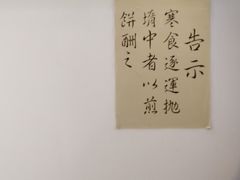 告示
寒食逐運拋
堶中者以煎
餅酬之